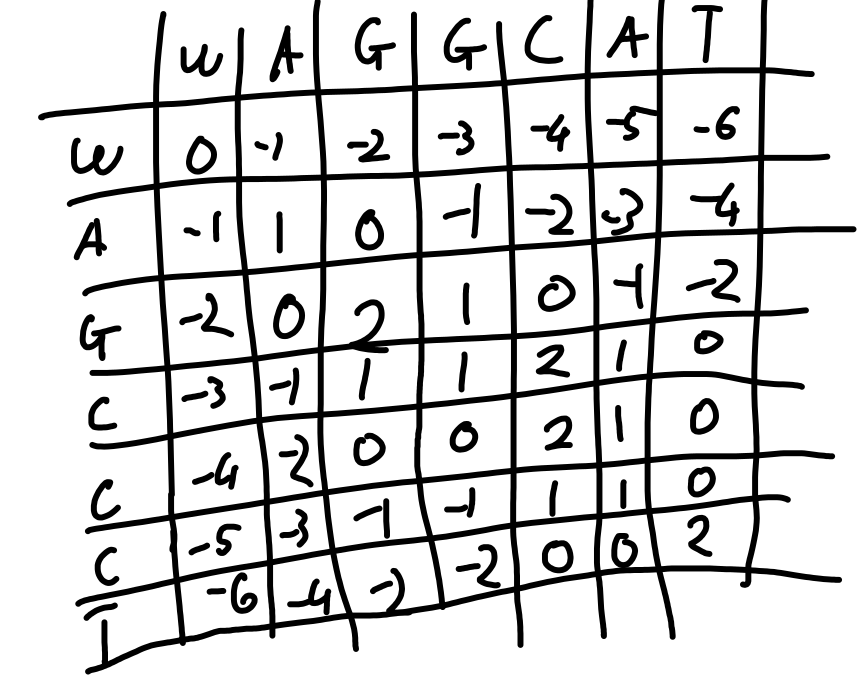 W A G G C A T
W 0 -1 -2 -3 -4 -5 -6
A -1 1 0 -1 -2 -3 -4
G -2 0 2 1 0 -1 -2
C -3 -1 1 1 2 1 0
C -4 -2 0 0 2 1 0
C -5 -3 -1 -1 1 1 0
T -6 -4 -2 -2 0 0 2